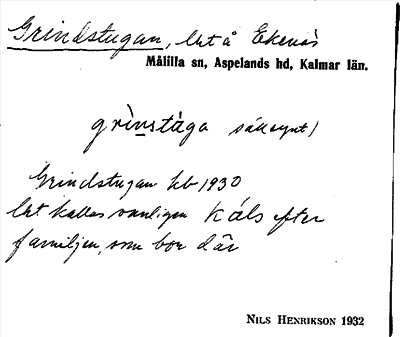 Grindstugan, lht å Ekenäs
Målilla sn, Aspelands hd, Kalmar län.
grìnstàga sällsynt)
Grindstugan kb 1930
lht kallas vanligen Káls efter
familjen, som bor där
NILS HENRIKSON 1932